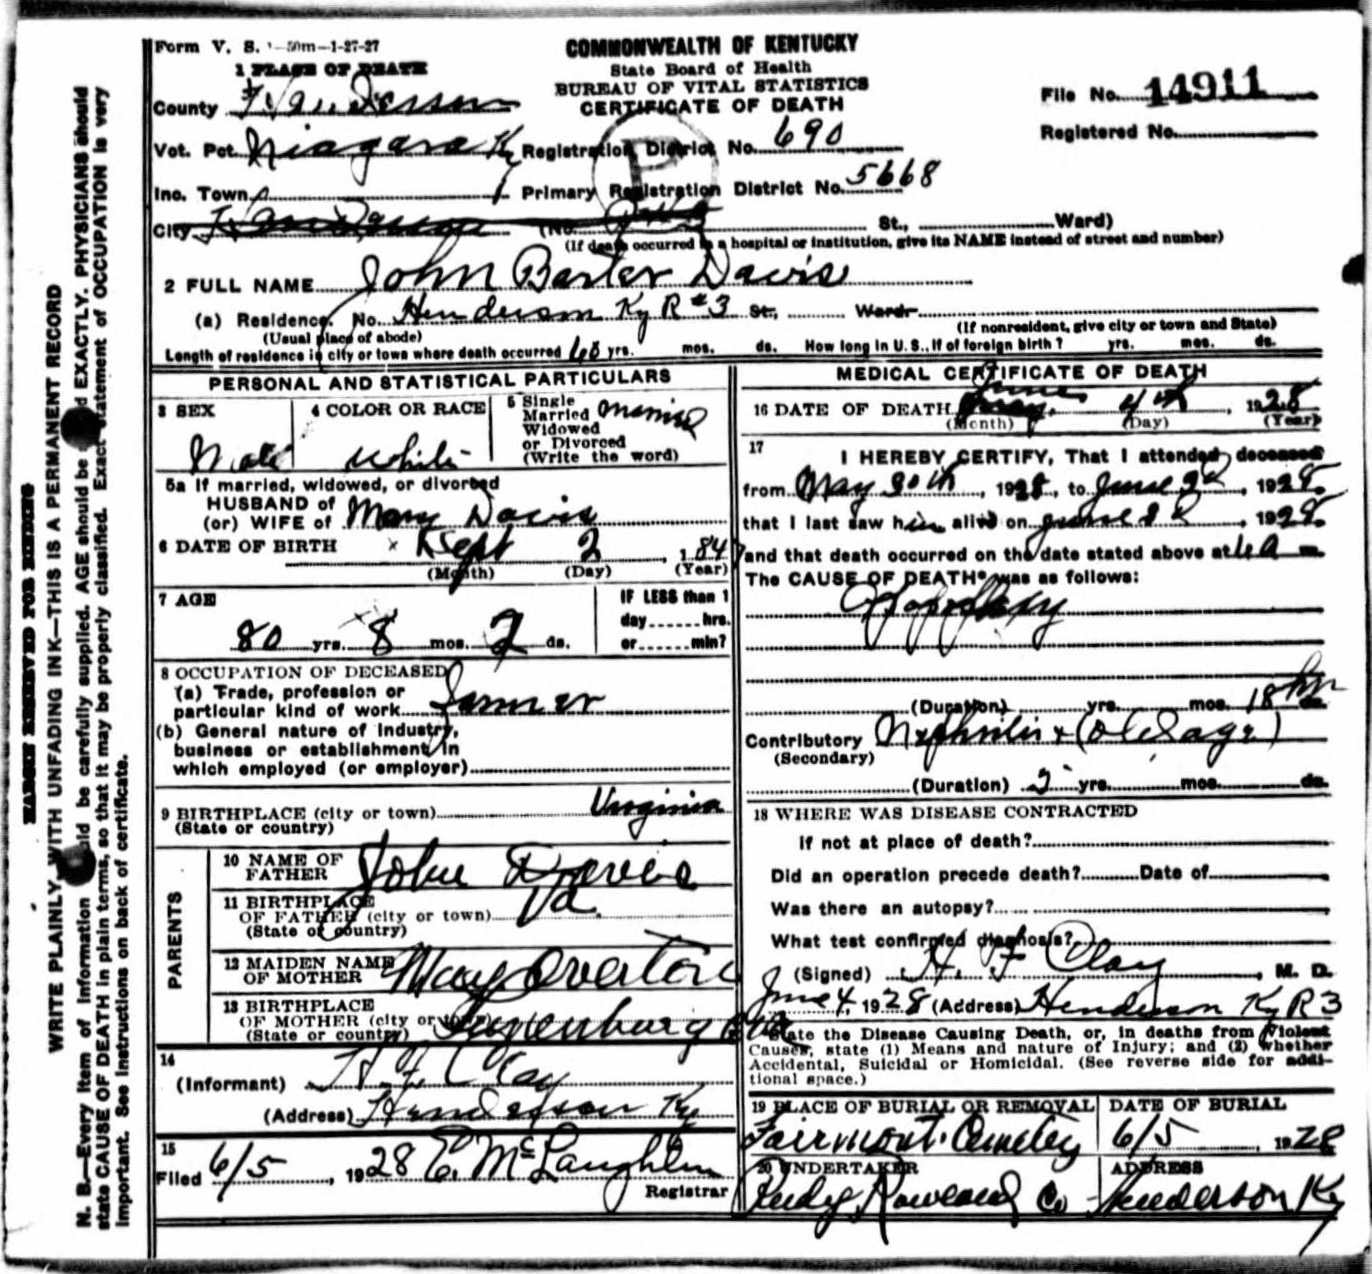 Form V. S. 1-50m-1-27-27
COMMONWEALTH OF KENTUCKY
State Board of Health
BUREAU OF VITAL STATISTICS
CERTIFICATE OF DEATH
File No. 14911
Registered No.
1 PLACE OF DEATH
County Henderson
Vot. Pct. Niagara Ky Registration District No. 690
Inc. Town Primary Registration District No. 5668
P
City Henderson (No. St., Ward)
(If death occurred in a hospital or institution, give its NAME instead of street and number)
2 FULL NAME John Baxter Davis
(a) Residence. No. Henderson Ky R #3 St., Ward.
(Usual place of abode) (If nonresident, give city or town and State)
Length of residence in city or town where death occurred 60 yrs. mos. ds. How long in U.S., if of foreign birth? yrs. mos. ds.
PERSONAL AND STATISTICAL PARTICULARS
3 SEX
Male
4 COLOR OR RACE
White
5 Single
Married
Widowed
or Divorced
(Write the word)
Married
5a If married, widowed, or divorced
HUSBAND of
(or) WIFE of Mary Davis
6 DATE OF BIRTH x Sept 2, 184
(Month) (Day) (Year)
7 AGE
80 yrs. 8 mos. 2 ds.
IF LESS than 1
day hrs.
or min?
8 OCCUPATION OF DECEASED
(a) Trade, profession or
particular kind of work Farmer
(b) General nature of industry,
business or establishment in
which employed (or employer)
9 BIRTHPLACE (city or town) Virginia
(State or country)
PARENTS
10 NAME OF
FATHER John Davis
11 BIRTHPLACE
OF FATHER (city or town) Va.
(State or country)
12 MAIDEN NAME
OF MOTHER Mary Overton
13 BIRTHPLACE
OF MOTHER (city or town) Lunenburg Co Va
(State or country)
14
(Informant) H. F. Clay
(Address) Henderson Ky
15
Filed 6/5, 1928 E. McLaughlin
Registrar
MEDICAL CERTIFICATE OF DEATH
16 DATE OF DEATH June May, 4th, 1928
(Month) (Day) (Year)
17
I HEREBY CERTIFY, That I attended deceased
from May 30th, 1928, to June 3d, 1928,
that I last saw him alive on June 3d, 1928,
and that death occurred on the date stated above at 6 a m.
The CAUSE OF DEATH* was as follows:
Apoplexy
(Duration) yrs. mos. 18 hrs ds.
Contributory Nephritis + (Old age)
(Secondary)
(Duration) 2 yrs. mos. ds.
18 WHERE WAS DISEASE CONTRACTED
If not at place of death?
Did an operation precede death? Date of
Was there an autopsy?
What test confirmed diagnosis?
(Signed) H. F. Clay, M. D.
June 4, 1928 (Address) Henderson Ky R 3
*State the Disease Causing Death, or, in deaths from Violent
Causes, state (1) Means and nature of Injury; and (2) whether
Accidental, Suicidal or Homicidal. (See reverse side for addi-
tional space.)
19 PLACE OF BURIAL OR REMOVAL
Fairmont Cemetery
DATE OF BURIAL
6/5, 1928
20 UNDERTAKER
Rudy Rowland Co
ADDRESS
Henderson Ky
MARGIN RESERVED FOR BINDING
WRITE PLAINLY, WITH UNFADING INK—THIS IS A PERMANENT RECORD
N. B.—Every item of information should be carefully supplied. AGE should be stated EXACTLY. PHYSICIANS should
state CAUSE OF DEATH in plain terms, so that it may be properly classified. Exact statement of OCCUPATION is very
important. See instructions on back of certificate.